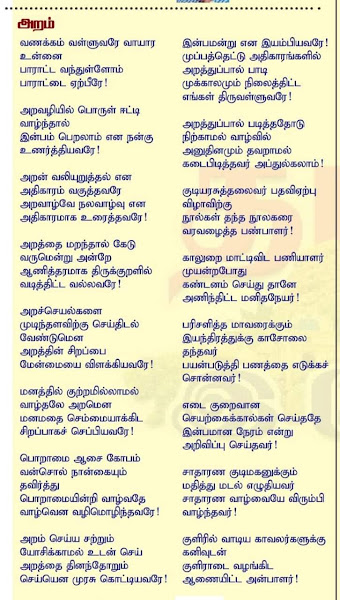 அறம்
வணக்கம் வள்ளுவரே வாயார
உன்னை
பாராட்ட வந்துள்ளோம்
பாராட்டை ஏற்பீரே!
அறவழியில் பொருள் ஈட்டி
வாழ்ந்தால்
இன்பம் பெறலாம் என நன்கு
உணர்த்தியவரே!
அறன் வலியுறுத்தல் என
அதிகாரம் வகுத்தவரே
அறவாழ்வே நலவாழ்வு என
அதிகாரமாக உரைத்தவரே!
அறத்தை மறந்தால் கேடு
வருமென்று அன்றே
ஆணித்தரமாக திருக்குறளில்
வடித்திட்ட வல்லவரே!
அறச்செயல்களை
முடிந்தளவிற்கு செய்திடல்
வேண்டுமென
அறத்தின் சிறப்பை
மேன்மையை விளக்கியவரே!
மனத்தில் குற்றமில்லாமல்
வாழ்தலே அறமென
மனமதை செம்மையாக்கிட
சிறப்பாகச் செப்பியவரே!
பொறாமை ஆசை கோபம்
வன்சொல் நான்கையும்
தவிர்த்து
பொறாமையின்றி வாழ்வதே
வாழ்வென வழிமொழிந்தவரே!
அறம் செய்ய சற்றும்
யோசிக்காமல் உடன் செய்
அறத்தை தினந்தோறும்
செய்யென முரசு கொட்டியவரே!
இன்பமன்று என இயம்பியவரே!
முப்பத்தெட்டு அதிகாரங்களில்
அறத்துப்பால் பாடி
முக்காலமும் நிலைத்திட்ட
எங்கள் திருவள்ளுவரே!
அறத்துப்பால் படித்ததோடு
நிற்காமல் வாழ்வில்
அனுதினமும் தவறாமல்
கடைபிடித்தவர் அப்துல்கலாம்!
குடியரசுத்தலைவர் பதவிஏற்பு
விழாவிற்கு
நூல்கள் தந்த நூலகரை
வரவழைத்த பண்பாளர்!
காலுறை மாட்டிவிட பணியாளர்
முயன்றபோது
கண்டனம் செய்து தானே
அணிந்திட்ட மனிதநேயர்!
பரிசளித்த மாவரைக்கும்
இயந்திரத்துக்கு காசோலை
தந்தவர்
பயன்படுத்தி பணத்தை எடுக்கச்
சொன்னவர்!
எடை குறைவான
செயற்கைக்கால்கள் செய்ததே
இன்பமான நேரம் என்று
அறிவிப்பு செய்தவர்!
சாதாரண குடிமகனுக்கும்
மதித்து மடல் எழுதியவர்
சாதாரண வாழ்வையே விரும்பி
வாழ்ந்தவர்!
குளிரில் வாடிய காவலர்களுக்கு
கனிவுடன்
குளிராடை வழங்கிட
ஆணையிட்ட அன்பாளர்!